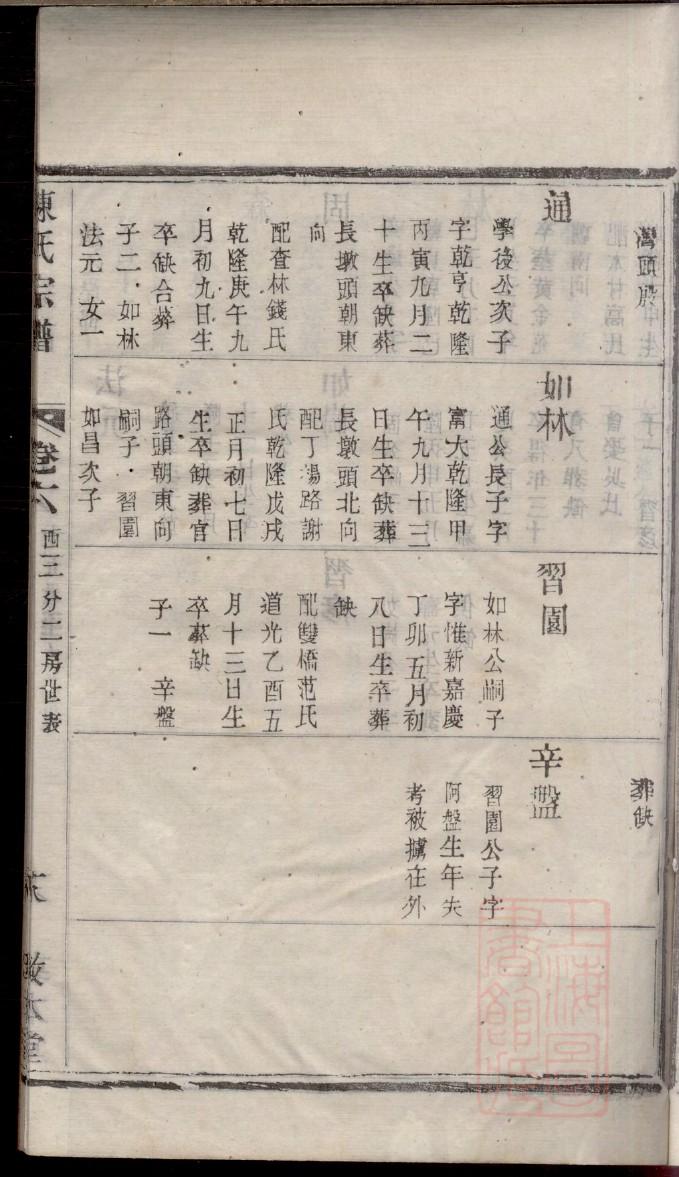 灣頭殿
通
學後公次子
字乾亨乾隆
丙寅九月二
十生卒缺葬
長墩頭朝東
向
配查林錢氏
乾隆庚午九
月初九日生
卒缺合葬
子二 如林
法元 女一
如林
通公長子字
富大乾隆甲
午九月十三
日生卒缺葬
長墩頭北向
配丁湯路謝
氏乾隆戊戌
正月初七日
生卒缺葬官
路頭朝東向
嗣子 習園
如昌次子
習園
如林公嗣子
字惟新嘉慶
丁卯五月初
八日生卒葬
缺
配雙橋范氏
道光乙酉五
月十三日生
卒葬缺
子一 辛盤
葬缺
辛盤
習園公子字
阿盤生年失
考被擄在外
陳氏宗譜
卷六
西三分二房世表
敬本堂
上海圖書館藏